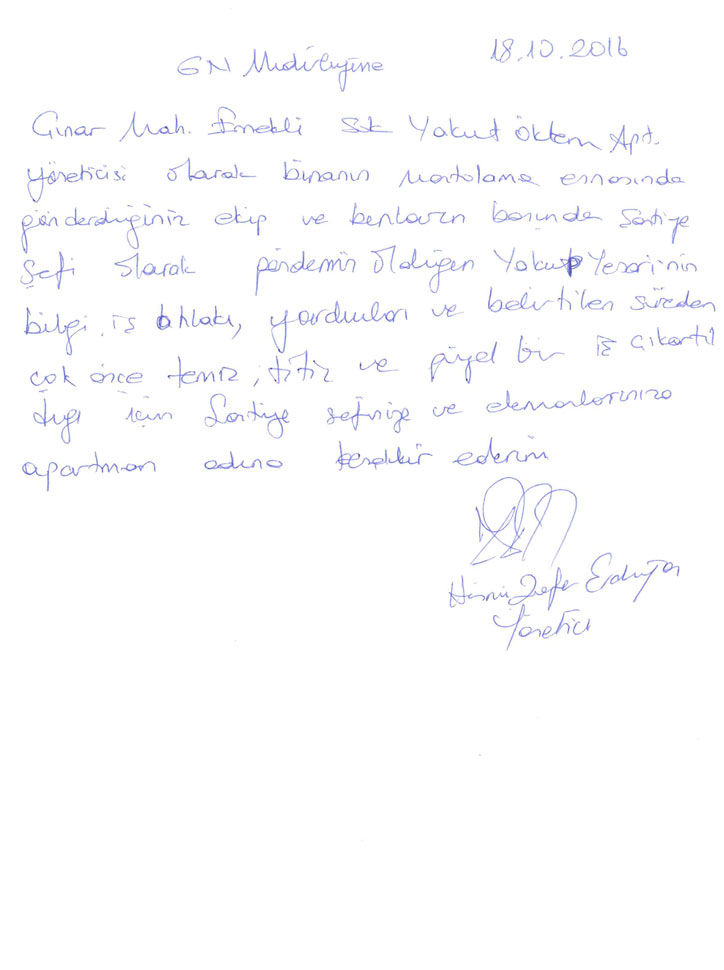 18.10.2016
GN Müdürlüğüne
Çınar Mah. Emekli Sk Yakut Öktem Apt.
yöneticisi olarak binanın mantolama esnasında
gönderdiğiniz ekip ve bunların başında Şantiye
Şefi olarak Yakup Yesari'nin
bilgi, iş ahlakı, yardımları ve belirtilen süreden
çok önce temiz, titiz ve güzel bir iş çıkartıl
dığı için Şantiye şefinize ve elemanlarınıza
apartman adına teşekkür ederim
Yönetici